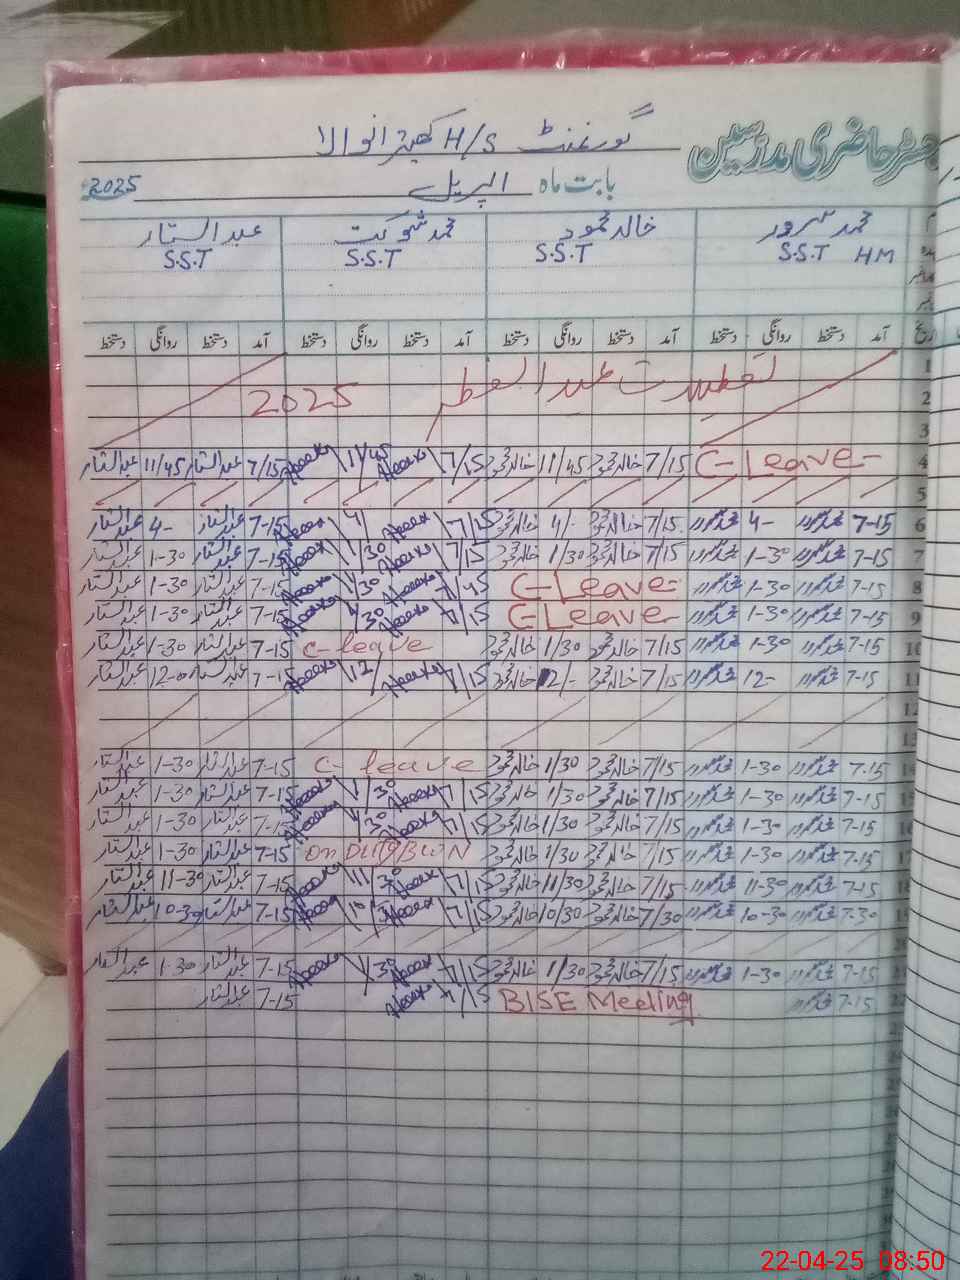 رجسٹر حاضری مدرسین
گورنمنٹ H/S کھیترانوالا
بابت ماہ اپریل 2025
محمد سرور خالد محمود محمد شوکت عبدالستار
S.S.T HM S.S.T S.S.T S.S.T
تاریخ آمد دستخط روانگی دستخط آمد دستخط روانگی دستخط آمد دستخط روانگی دستخط آمد دستخط روانگی دستخط
1
2 تعطیلات عید الفطر 2025
3
4 C-Leave- 7/15 خالد محمود 11/45 خالد محمود 7/15 11/45 7/15 عبدالستار 11/45 عبدالستار
5
6 7-15 محمد سرور 4- محمد سرور 7/15 خالد محمود 4/- خالد محمود 7/15 4/ 7-15 عبدالستار 4- عبدالستار
7 7-15 محمد سرور 1-30 محمد سرور 7/15 خالد محمود 1/30 خالد محمود 7/15 1/30 7-15 عبدالستار 1-30 عبدالستار
8 7-15 محمد سرور 1-30 محمد سرور C-Leave- 1/30 7-15 عبدالستار 1-30 عبدالستار
9 7-15 محمد سرور 1-30 محمد سرور C-Leave- 7/15 1/30 7-15 عبدالستار 1-30 عبدالستار
10 7-15 محمد سرور 1-30 محمد سرور 7/15 خالد محمود 1/30 خالد محمود C-leave 7-15 عبدالستار 1-30 عبدالستار
11 7-15 محمد سرور 12- محمد سرور 7/15 خالد محمود 12/- خالد محمود 7/15 12/ 7-15 عبدالستار 12-0 عبدالستار
12
13
14 7-15 محمد سرور 1-30 محمد سرور 7/15 خالد محمود 1/30 خالد محمود C-leave 7-15 عبدالستار 1-30 عبدالستار
15 7-15 محمد سرور 1-30 محمد سرور 7/15 خالد محمود 1/30 خالد محمود 7/15 1/30 7-15 عبدالستار 1-30 عبدالستار
16 7-15 محمد سرور 1-30 محمد سرور 7/15 خالد محمود 1/30 خالد محمود 7/15 1/30 7-15 عبدالستار 1-30 عبدالستار
17 7-15 محمد سرور 1-30 محمد سرور 7/15 خالد محمود 1/30 خالد محمود on DUTY 7-15 عبدالستار 1-30 عبدالستار
18 7-15 محمد سرور 11-30 محمد سرور 7/15 خالد محمود 11/30 خالد محمود 7/15 11/30 7-15 عبدالستار 11-30 عبدالستار
19 7-30 محمد سرور 10-30 محمد سرور 7/30 خالد محمود 10/30 خالد محمود 7/15 7-15 عبدالستار 10-30 عبدالستار
20
21 7-15 محمد سرور 1-30 محمد سرور 7/15 خالد محمود 1/30 خالد محمود 7/15 1/30 7-15 عبدالستار 1-30 عبدالستار
22 7-15 محمد سرور BISE Meeting 7/15 7-15 عبدالستار
22-04-25 08:50